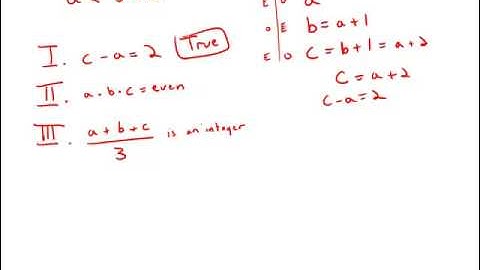 I. c - a = 2 True
II. a · b · c = even
III. a + b + c
3
is an integer
E O a
O E b = a + 1
E O c = b + 1 = a + 2
c = a + 2
c - a = 2